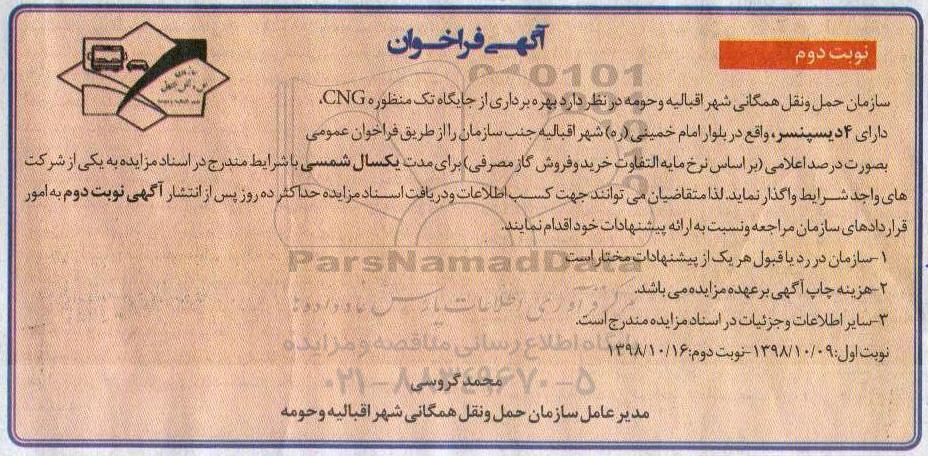 آگهی فراخوان
نوبت دوم
سازمان حمل ونقل همگانی شهر اقبالیه وحومه در نظر دارد بهره برداری از جایگاه تک منظوره CNG،
دارای ۴ دیسپنسر، واقع در بلوار امام خمینی (ره) شهر اقبالیه جنب سازمان را از طریق فراخوان عمومی
بصورت درصد اعلامی (بر اساس نرخ مابه التفاوت خرید و فروش گاز مصرفی) برای مدت یکسال شمسی با شرایط مندرج در اسناد مزایده به یکی از شرکت
های واجد شرایط واگذار نماید. لذا متقاضیان می توانند جهت کسب اطلاعات و دریافت اسناد مزایده حداکثر ده روز پس از انتشار آگهی نوبت دوم به امور
قراردادهای سازمان مراجعه ونسبت به ارائه پیشنهادات خود اقدام نمایند.
۱-سازمان در رد یا قبول هر یک از پیشنهادات مختار است
۲-هزینه چاپ آگهی بر عهده مزایده می باشد.
۳-سایر اطلاعات وجزئیات در اسناد مزایده مندرج است.
نوبت اول: ۱۳۹۸/۱۰/۰۹-نوبت دوم: ۱۳۹۸/۱۰/۱۶
محمد گروسی
مدیر عامل سازمان حمل ونقل همگانی شهر اقبالیه وحومه
ParsNamadData
پایگاه اطلاع رسانی مناقصه و مزایده
۰۲۱-۸۸۳۴۹۶۷۰-۵